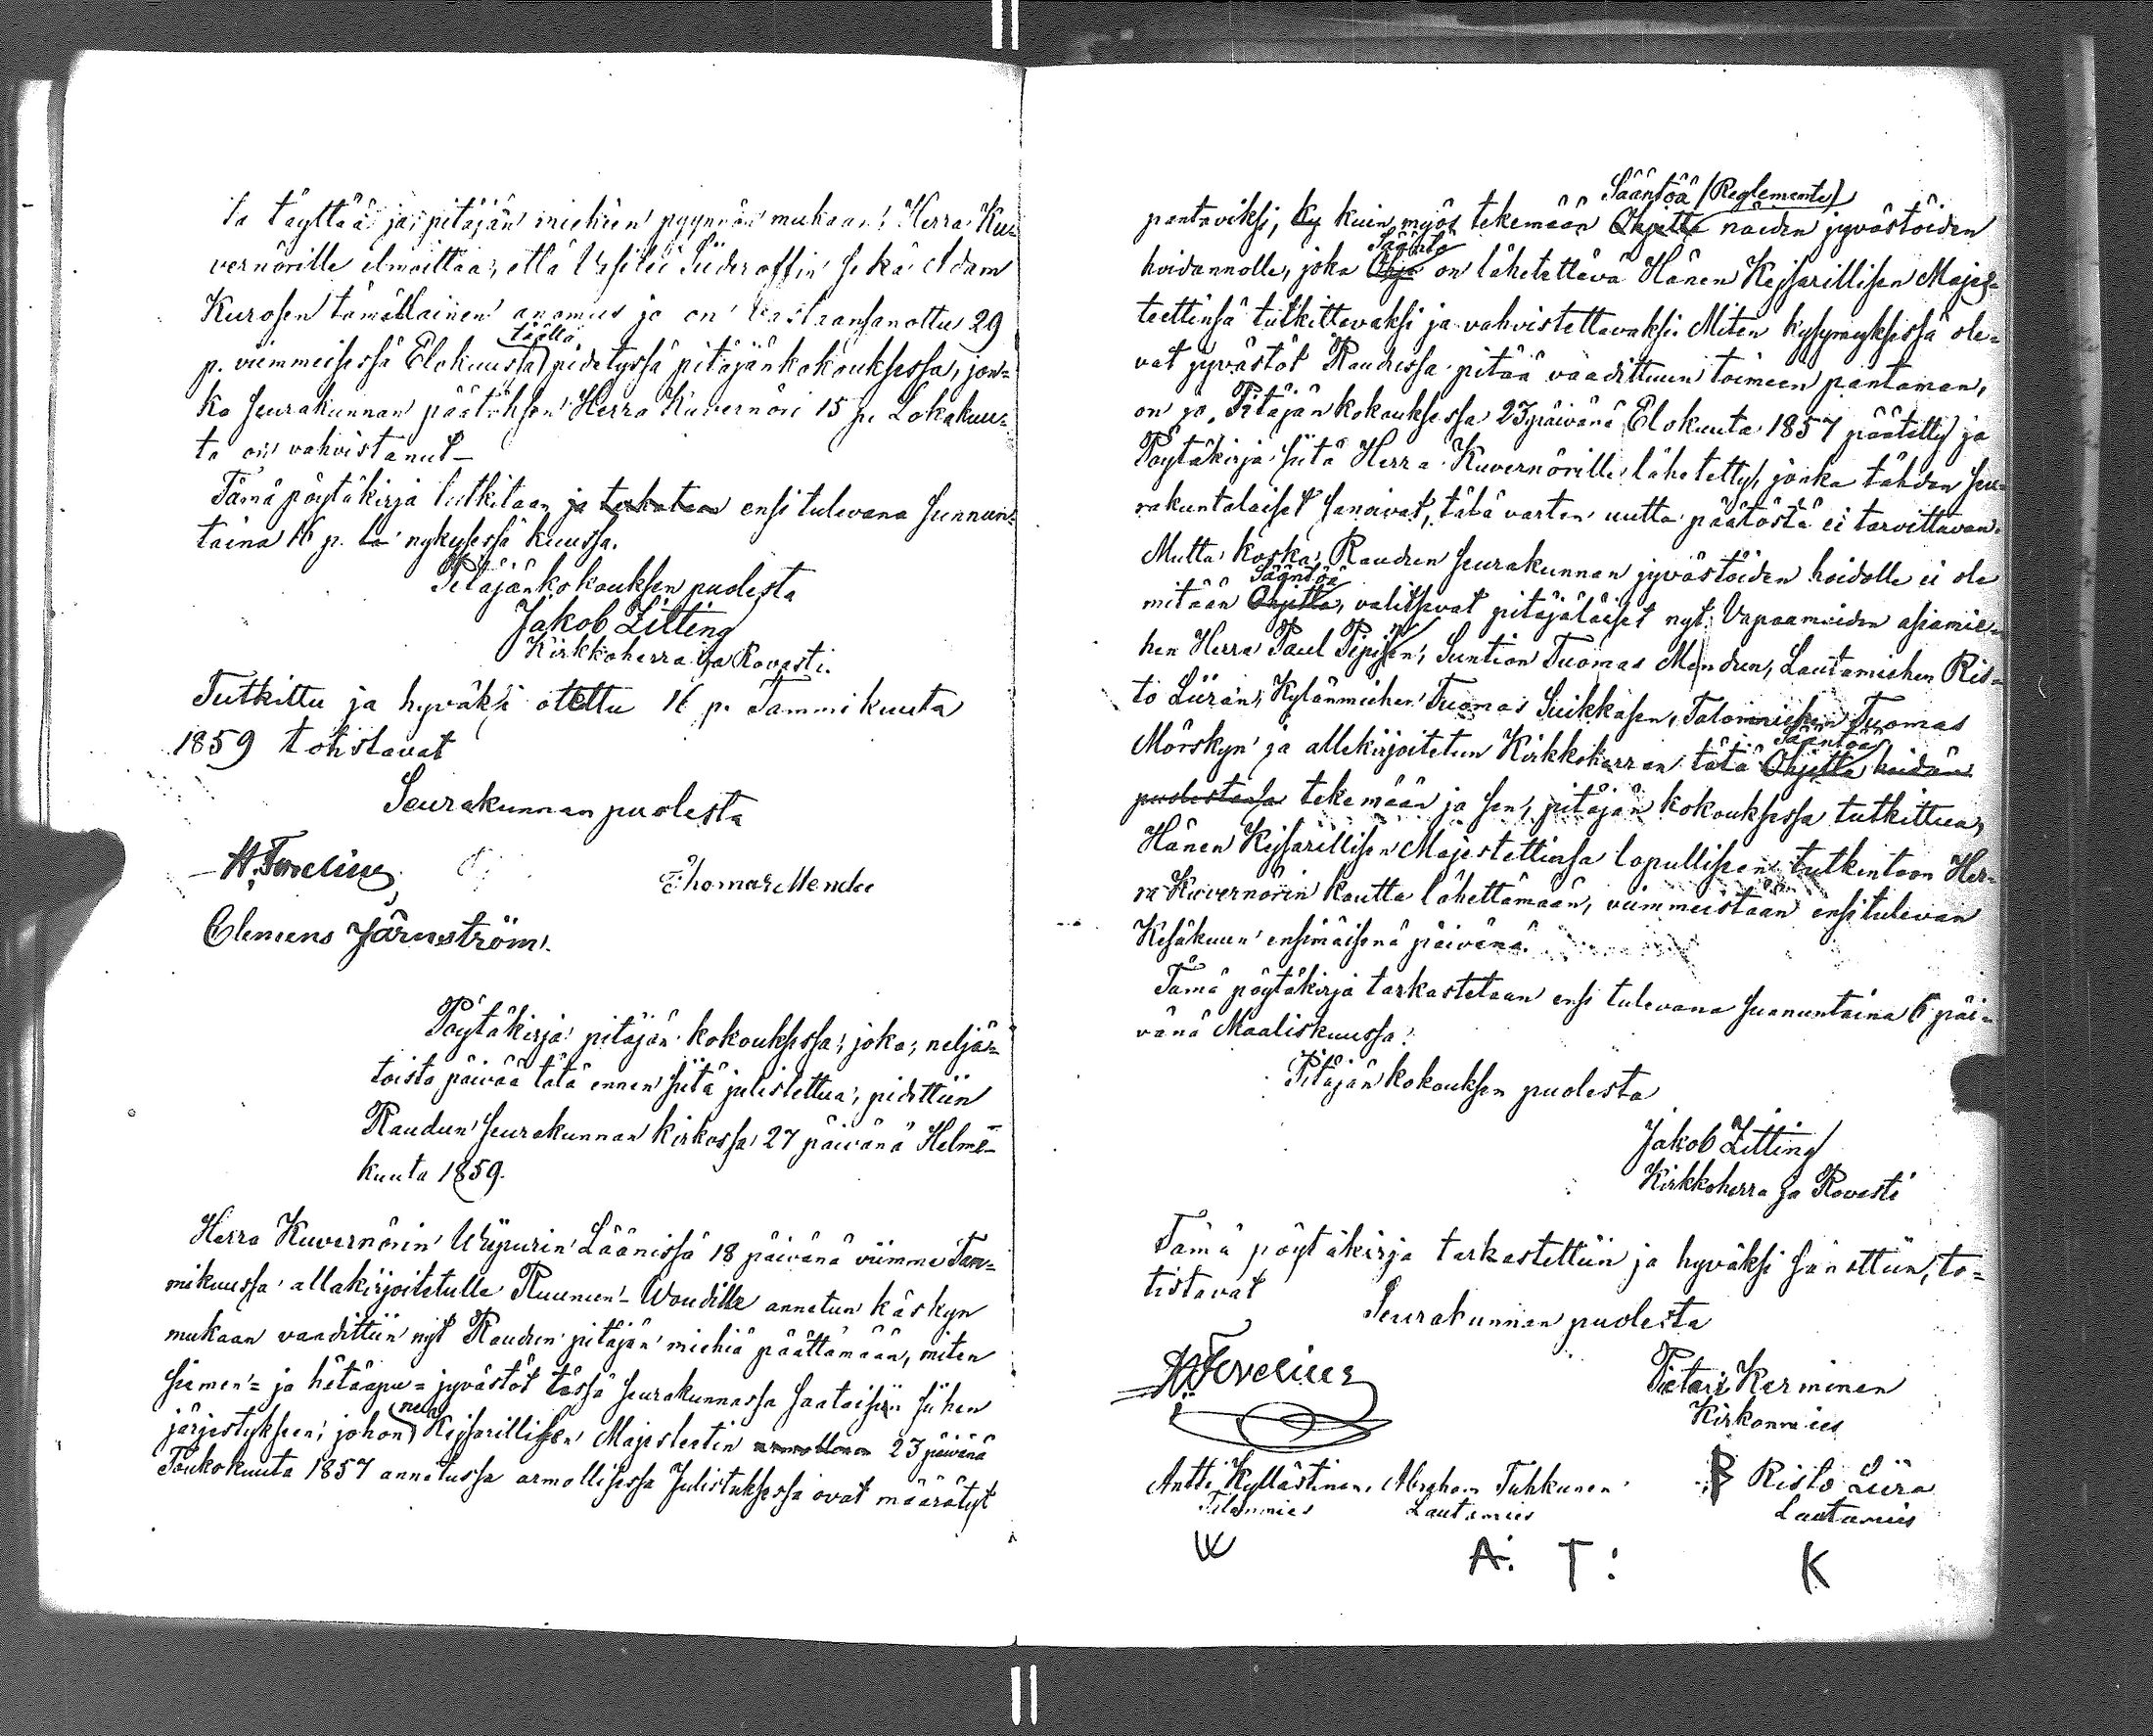 ta täyttää ja, pitäjän miehien pyynnön mukaan, Herra Ku-
vernörille ilmoittaa, että Siideroffin sekä Adam
Kurosen tämällainen anomus jo on vastaanotettu 29
p. viimmeisessä Elokuusta täällä pidetyssä pitäjänkokouksessa, jon-
ka seurakunnan päätöksen Herra Kuvernöri 15 p. Lokakuu-
ta on vahvistanut_
Tämä pöytäkirja tutkitaan ja ensi tulevana sunnun-
taina 16 p. ta nykysessä kuussa.
Pitäjänkokouksen puolesta
Jakob Zitting
Kirkkoherra ja Rovasti.
Tutkittu ja hyväksi otettu 16 p. Tammikuuta
1859 tohistavat
Seurakunnan puolesta
Thomas Mendu
Clemens Järnström.
Pöytäkirja pitäjän kokouksessa, joka, neljä-
toista päivää tätä ennen siitä julistettua, pidettiin
Raudun seurakunnan kirkossa 27 päivänä Helmi-
kuuta 1859.
Herra Kuvernörin Wiipurin Läänissä 18 päivänä viimme Tam-
mikuussa allakirjoitetulle Ruunun-Woudille annetun käskyn
mukaan vaadittiin nyt Raudun pitäjän miehiä päättämään, miten
siemen- ja hätäapu-jyvästöt tässä seurakunnassa saataisiin siihen
järjestykseen; johon ne Kejsarillisen Majestetin 23 päivänä
Toukokuuta 1857 annetussa armollisessa Julistuksessa ovat määrätyt
Sääntöä (Reglemente)
pantaviksi, ky kuin myös tekemään Ohjetta näiden jyvästöiden
Sääntö
hoidannolle, joka Ohje on lähetettävä Hänen Kejsarillisen Majes-
teettinsä tutkittavaksi ja vahvistettavaksi. Miten kysymyksessä ole-
vat jyvästöt Raudussa pitää vaadittuun toimeen pantaman,
on jo Pitäjänkokouksessa 23 päivänä Elokuuta 1857 päätetty ja
Pöytäkirja siitä Herra Kuvernörille lähetetty, jonka tähden seu-
rakuntalaiset sanoivat, tätä varten uutta päätöstä ei tarvittavan.
Mutta koska Raudun seurakunnan jyvästöiden hoidolle ei ole
Sääntöä
mitään Ohjetta, valitsevat pitäjäläiset nyt Vapaamiiden asiamie-
hen Herra Paul Suntion Tuomas Mendun, Lautamiehen Ris-
to Liiran, Kylänmiehen Tuomas Suikkasen, Talonmiehen Tuomas
Sääntöä
Mörskyn ja allekirjoitetun Kirkkoherran tätä Ohjetta heidän
puolestansa tekemään ja sen, pitäjän kokouksessa tutkittua,
Hänen Kejsarillisen Majestettinsa lopulliseen tutkintoon Her-
ra Kuvernörin kautta lähettämään, viimmeistään ensitulevan
Kesäkuun ensimäisenä päivänä.
Tämä pöytäkirja tarkastetaan ensi tulevana sunnuntaina 6 päi-
vänä Maaliskuussa.
Pitäjänkokouksen puolesta
Jakob Zitting
Kirkkoherra ja Rovasti
Tämä pöytäkirja tarkastettiin ja hyväksi sanottiin, to-
tistavat
Seurakunnan puolesta
Pietari Kerminen
Kirkonmies
Antti Kyllästinen, Abraham Tuhkunen Risto Liira
Talonmies Lautamies Lautamies
A: T: K